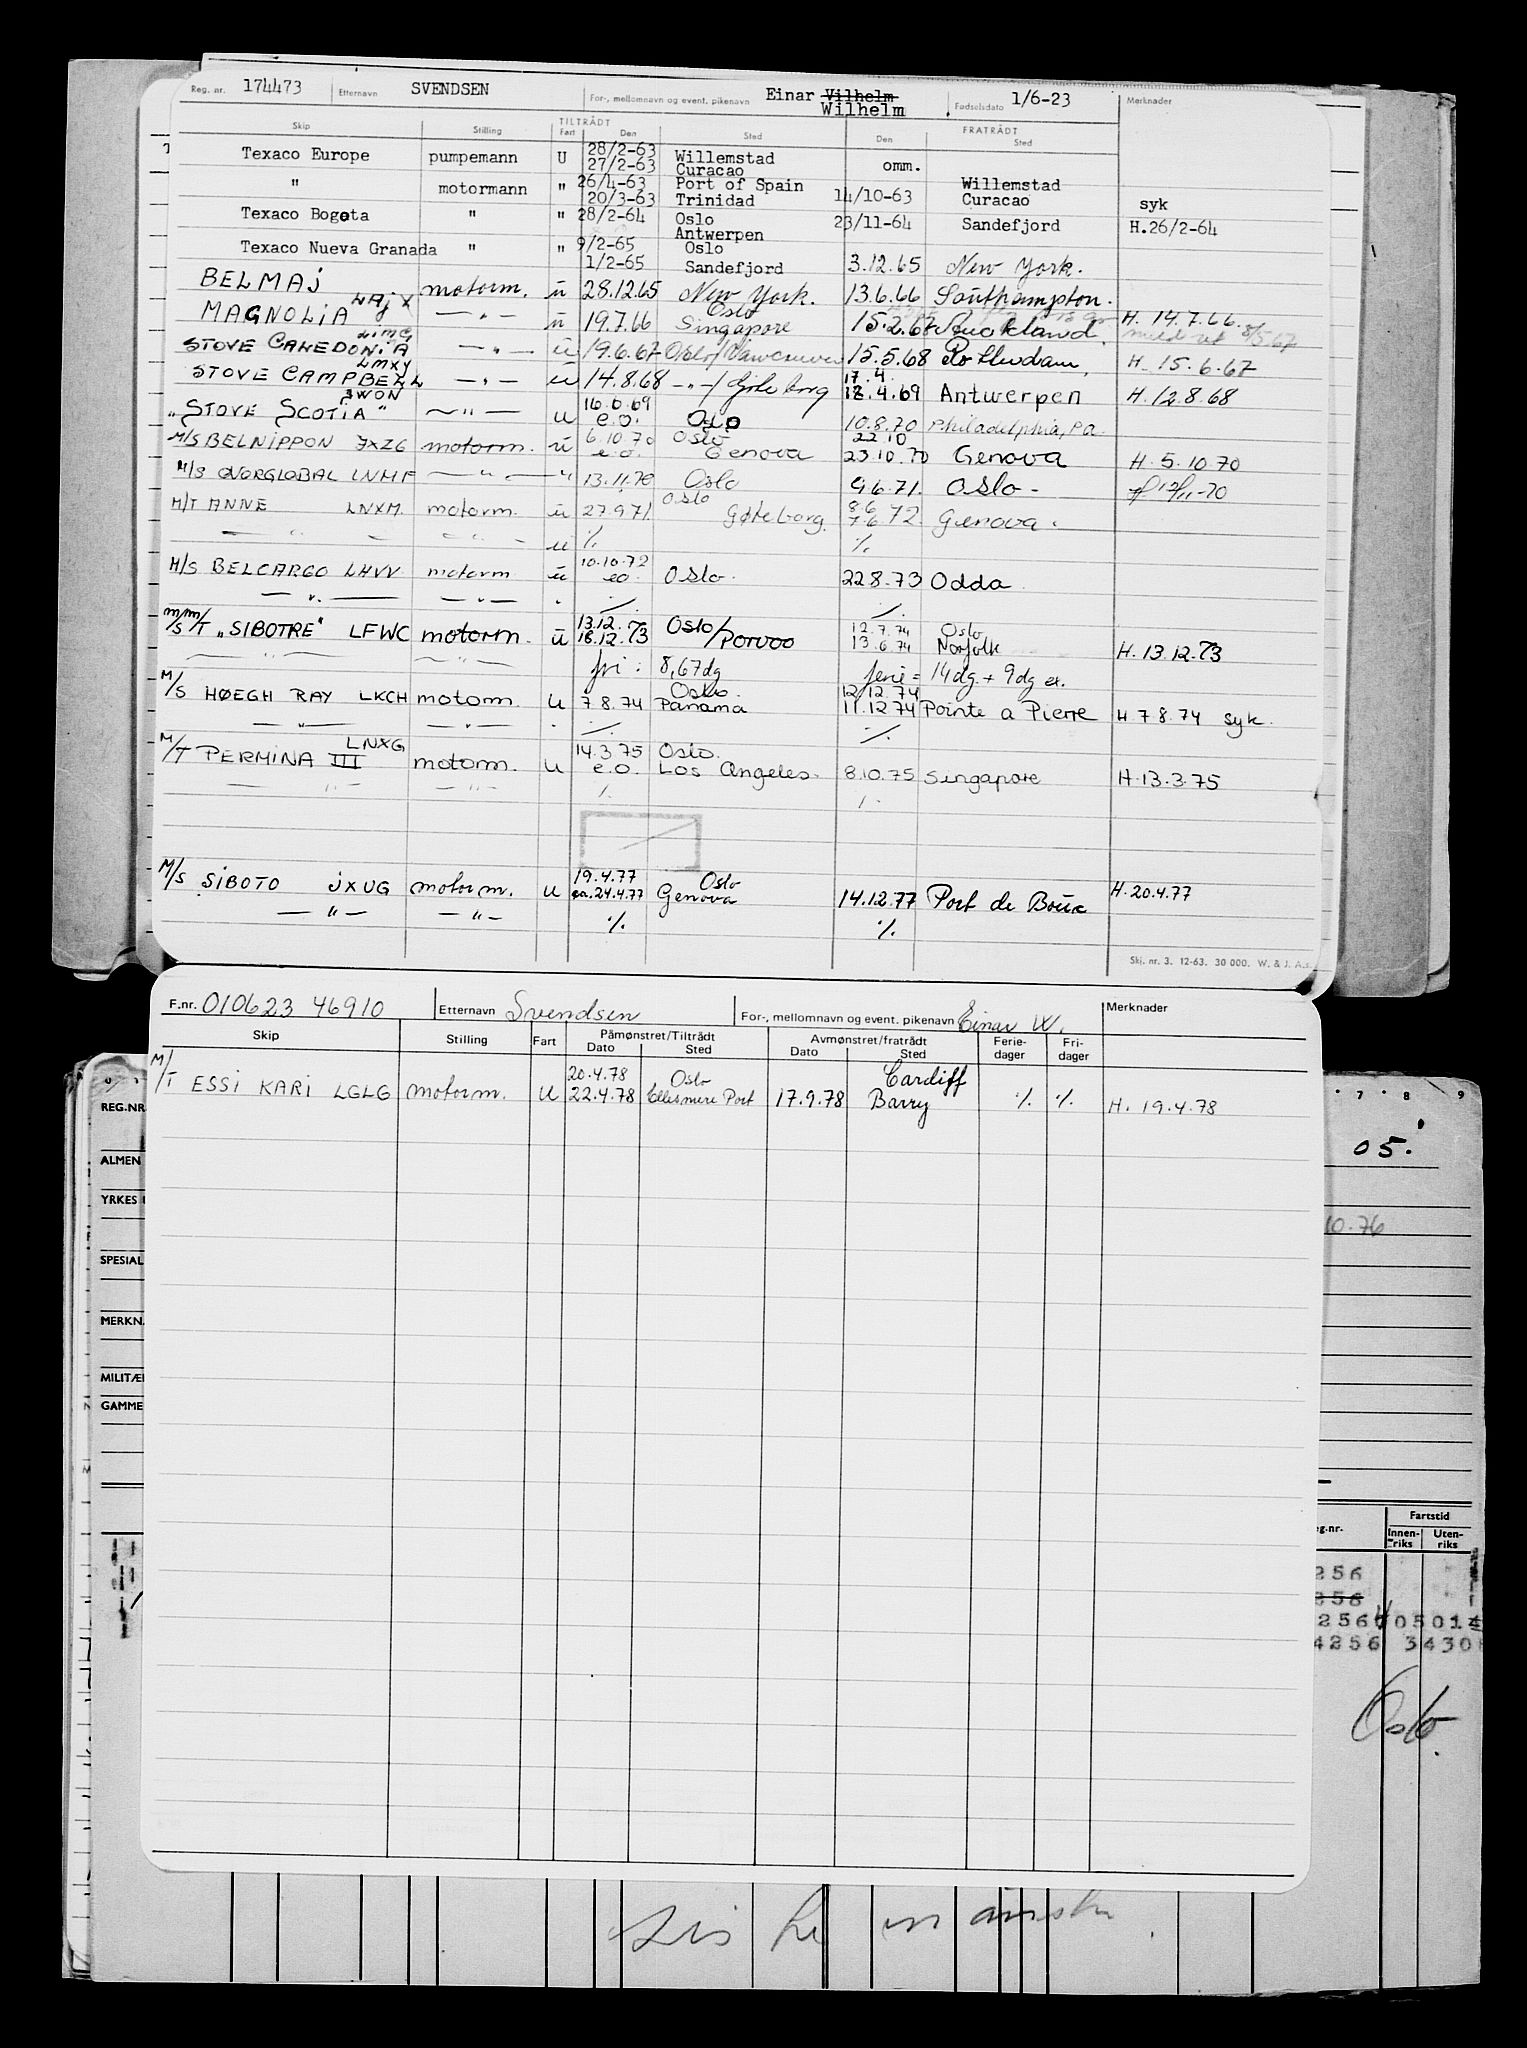 Reg. nr. 174473 Etternavn SVENDSEN For-, mellomnavn og event. pikenavn Einar Vilhelm Wilhelm Fødselsdato 1/6-23 Merknader
Skip Stilling TILTRÅDT Fart Den Sted FRATRÅDT Den Sted
Texaco Europe pumpemann U 28/2-63 27/2-63 Willemstad Curacao omm.
" motormann " 26/4-63 20/3-63 Port of Spain Trinidad 14/10-63 Willemstad Curacao syk
Texaco Bogota " " 28/2-64 Oslo Antwerpen 23/11-64 Sandefjord H.26/2-64
Texaco Nueva Granada " " 9/2-65 1/2-65 Oslo Sandefjord 3.12.65 New York.
BELMAJ motorm. ü 28.12.65 New York. 13.6.66 Southampton.
MAGNOLIA LAJX —"— ü 19.7.66 Oslo Singapore 15.2.67 Auckland. H. 14.7.66. 8/5.67
STOVE CALEDONIA —"— ü 19.6.67 Oslo/Vancouver 15.5.68 Rotterdam, H. 15.6.67
STOVE CAMPBELL LMXY —"— ü 14.8.68 —"—/Göteborg 17.4 18.4.69 Antwerpen H.12.8.68
"STOVE SCOTIA" JWON —"— u 16.6.69 e.o. Oslo 10.8.70 Philadelphia, Pa.
M/S BELNIPPON JXZG motorm. ü 6.10.70 e.o. Oslo Genova 22.10 23.10.70 Genova H. 5.10.70
M/S NORGLOBAL LNMF —"— " 13.11.70 Oslo 9.6.71. Oslo - 12/11-70
M/T ANNE LNXM motorm. ü 27.9.71. Oslo Gøteborg. 8.6 7.6 72. Genova.
—"— —"— ü ·/. ·/.
M/S BELCARGO LHVV motorm ü 10.10.72 eo. Oslo. 22.8.73 Odda
—"— —"— " ·/. ·/.
M/S M/T "SIBOTRE" LFWC motorm. ü 13.12.73 18.12.73 Oslo/Porvoo 12.7.74 13.6.74 Oslo Norfolk H. 13.12.73
—"— —"— fri: 8,67dg ferie = 14dg. + 9dg ex.
M/S HØEGH RAY LKCH motorm. u 7.8.74 Oslo. Panama 12/12.74 11.12.74 Pointe a Pierre H.7.8.74 syk.
—"— —"— ·/. ·/.
M/T PERMINA III LNXG motorm. u 14.3.75 e.o. Oslo. Los Angeles. 8.10.75 Singapore H.13.3.75
—"— —"— ·/. ·/.
M/S SIBOTO JXUG motorm. u 19.4.77 ca.24.4.77 Oslo Genova 14.12.77 Port de Bouc H.20.4.77
—"— —"— ·/. ·/.
Skj. nr. 3. 12-63. 30 000. W. & J. A.s.
F.nr. 010623 46910 Etternavn Svendsen For-, mellomnavn og event. pikenavn Einar W. Merknader
Skip Stilling Fart Påmønstret/Tiltrådt Dato Sted Avmønstret/fratrådt Dato Sted Ferie-dager Fri-dager
M/T ESSI KARI LGLG motorm. U 20.4.78 22.4.78 Oslo Ellesmere Port 17.9.78 Cardiff Barry ·/. ·/. H. 19.4.78
REG.NR. 7 8 9
ALMEN 05.
YRKES
10.76
SPESIAL
MERKN.
MILITÆR
GAMME
eg.nr. Fartstid
Innen-riks Uten-riks
256
256
256 05014
4256 3430
Oslo.